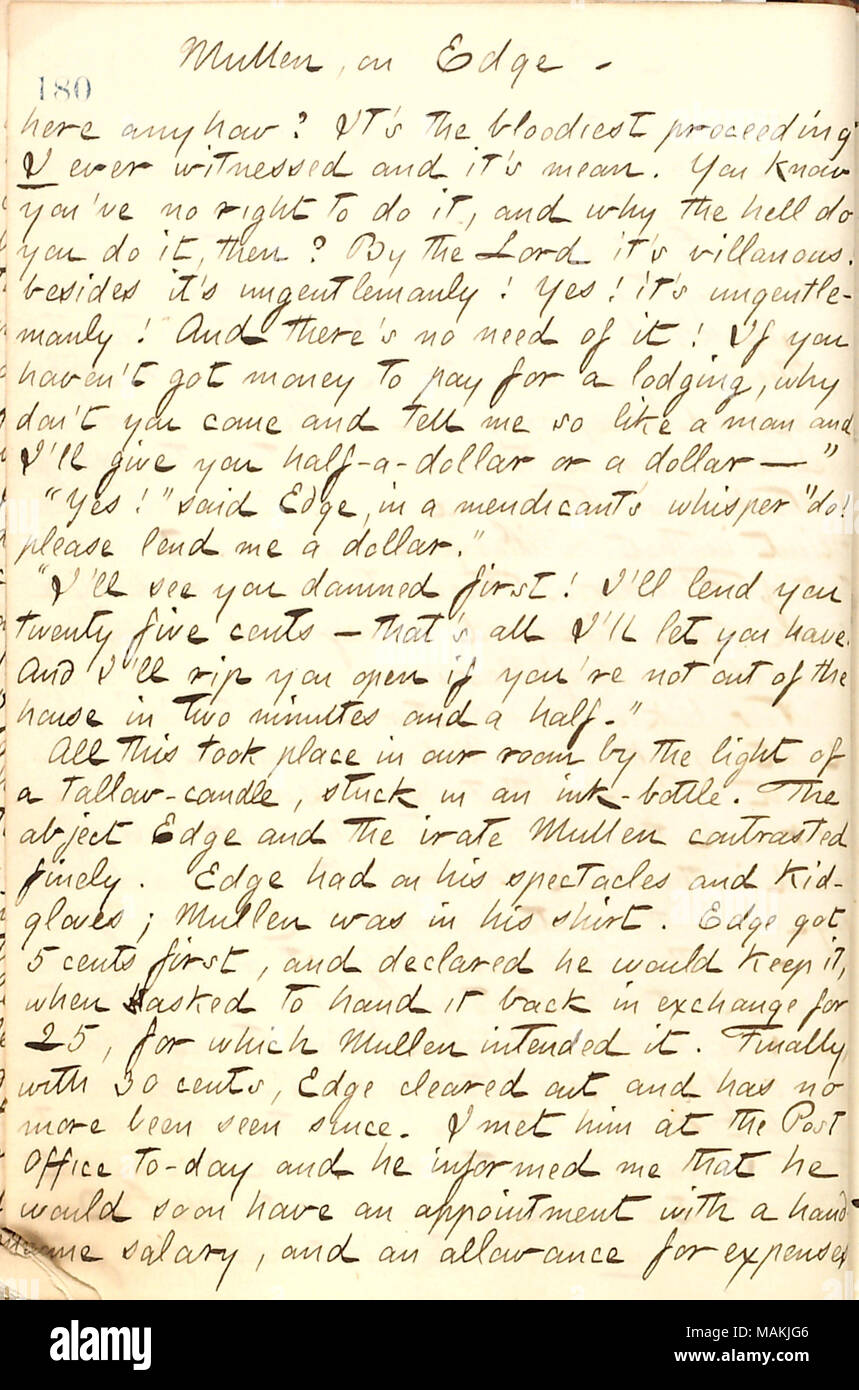 Mullen, on Edge -
180
here anyhow? It's the bloodiest proceeding
I ever witnessed and it's mean. You know
you've no right to do it, and why the hell do
you do it, then? By the Lord it's villanous.
besides it's ungentlemanly! Yes! it's ungentle-
manly! And there's no need of it! If you
haven't got money to pay for a lodging, why
don't you come and tell me so like a man and
I'll give you half-a-dollar or a dollar —"
"Yes!" said Edge, in a mendicant's whisper "do!
please lend me a dollar."
"I'll see you damned first! I'll lend you
twenty five cents — that's all I'll let you have.
And I'll rip you open if you're not out of the
house in two minutes and a half."
All this took place in our room by the light of
a tallow-candle, stuck in an ink-bottle. The
abject Edge and the irate Mullen contrasted
finely. Edge had on his spectacles and kid-
gloves; Mullen was in his shirt. Edge got
5 cents first, and declared he would keep it,
when asked to hand it back in exchange for
25, for which Mullen intended it. Finally
with 30 cents, Edge cleared out and has no
more been seen since. I met him at the Post
Office to-day and he informed me that he
would soon have an appointment with a hand-
some salary, and an allowance for expenses
alamy
Image ID: MAKJG6
www.alamy.com